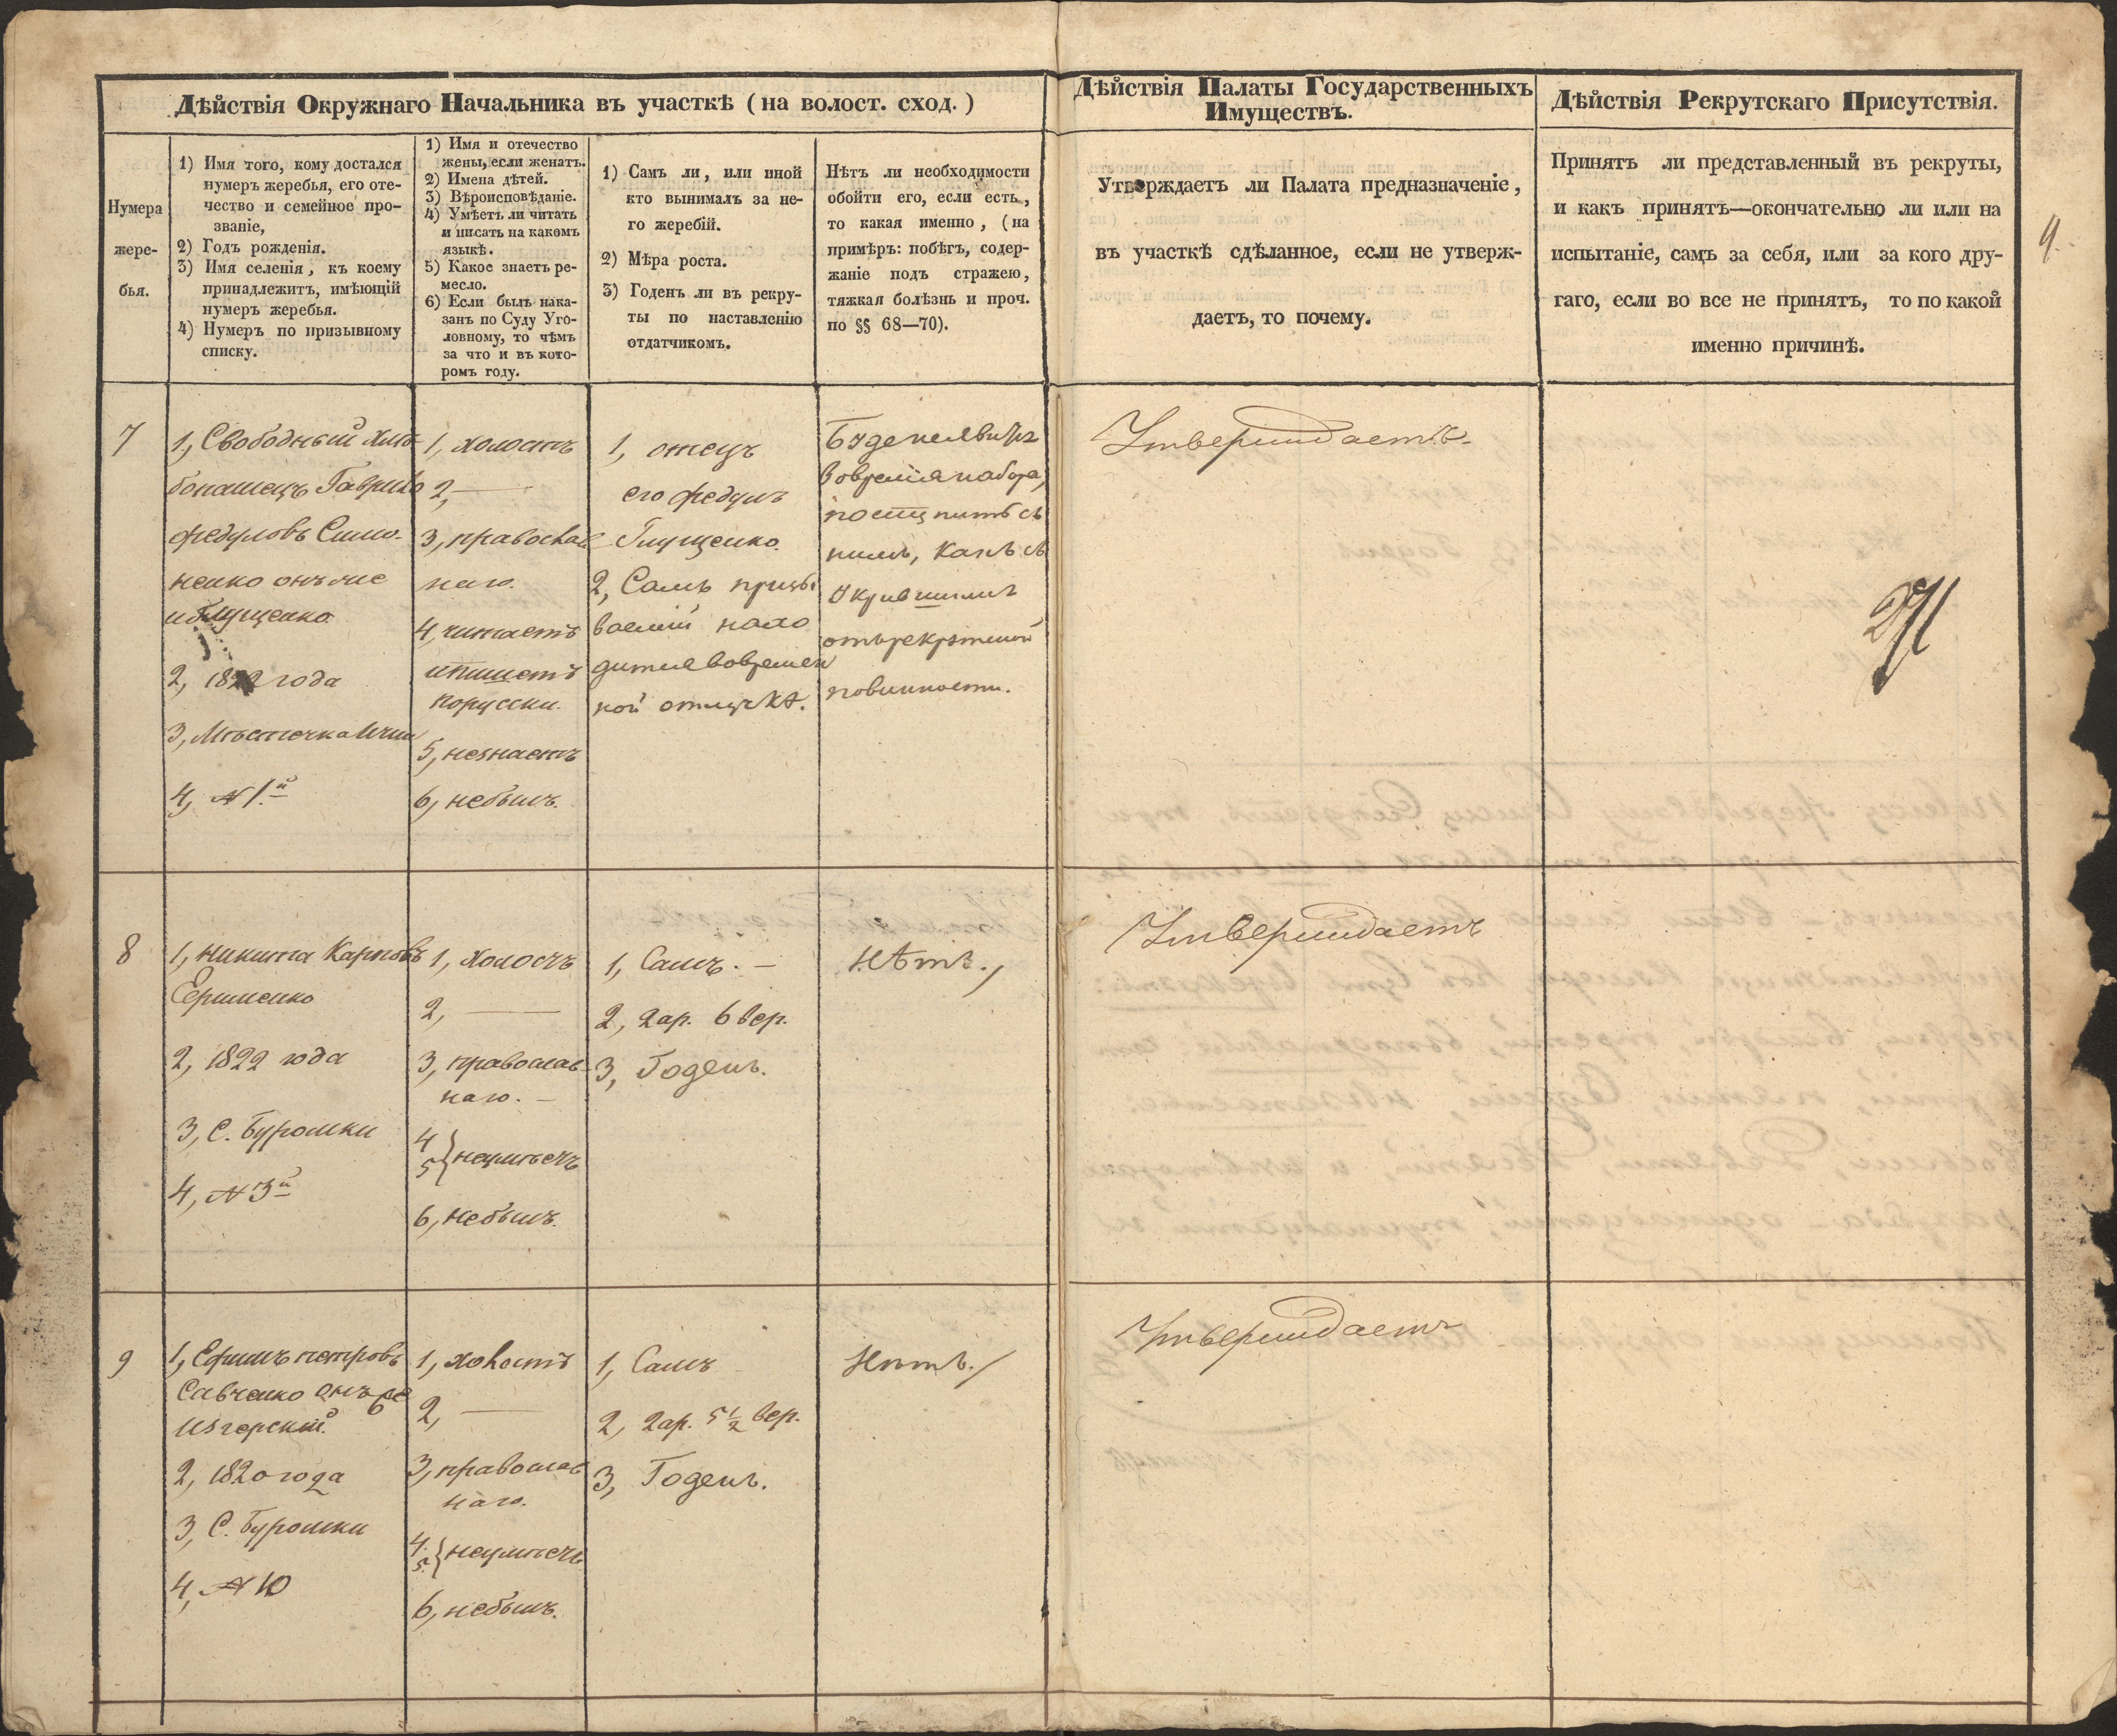 Дѣйствія Окружнаго Начальника въ участкѣ ( на волост. сход. )
Нумера
жере-
бья.
1) Имя того, кому достался
нумеръ жеребья, его оте-
чество и семейное про-
званіе,
2) Годъ рожденія.
3) Имя селенія, къ коему
принадлежитъ, имѣющій
нумеръ жеребья.
4) Нумеръ по призывному
списку.
1) Имя и отечество
жены, если женатъ.
2) Имена дѣтей.
3) Вѣроисповѣданіе.
4) Умѣетъ ли читать
и писать на какомъ
языкѣ.
5) Какое знаетъ ре-
месло.
6) Если былъ нака-
занъ по Суду Уго-
ловному, то чѣмъ
за что и въ кото-
ромъ году.
1) Самъ ли, или иной
кто вынималъ за не-
го жеребій.
2) Мѣра роста.
3) Годенъ ли въ рекру-
ты по наставленію
отдатчикомъ.
Нѣтъ ли необходимости
обойти его, если есть,
то какая именно, (на
примѣръ: побѣгъ, содер-
жаніе подъ стражею,
тяжкая болѣзнь и проч.
по §§ 68—70).
Дѣйствія Палаты Государственныхъ
Имуществъ.
Утверждаетъ ли Палата предназначеніе,
въ участкѣ сдѣланное, если не утверж-
даетъ, то почему.
Дѣйствія Рекрутскаго Присутствія.
Принятъ ли представленный въ рекруты,
и какъ принятъ—окончательно ли или на
испытаніе, самъ за себя, или за кого дру-
гаго, если во все не принятъ, то по какой
именно причинѣ.
9.
7
1, Свободный хлѣ
бопашецъ Гаврило
Федуловъ Симо-
ненко онъ же
и Глущенко
2, 1822 года
3, Мѣстечка
4, N 1.й
1, холостъ
2, —
3, православ
наго.
4, читаетъ
ипишетъ
порусски.
5, незнаетъ
6, небылъ.
1, отецъ
его Федулъ
Глущенко.
2, Самъ призы
ваемый нахо
дится вовремен
ной отлучкѣ.
Буде неявится
вовремя набора,
поступить съ
нимъ, какъ съ
укрившимся
отъ рекрутской
повинности.
Утверждаетъ.
8
1, Никита Карповъ
Ефименко
2, 1822 года
3, С. Буромки
4, N 3й
1, Холостъ
2, —
3, православ
наго. —
4
5} неумѣетъ
6, небылъ.
1, Самъ. —
2, 2 ар. 6 вер.
3, Годенъ.
Нѣтъ.
Утверждаетъ
9
1, Ефимъ петровъ
Савченко онъ же
Изгорский.
2, 1820 года
3, С. Буромки
4, N 10
1, холостъ
2, —
3, православ
наго.
4.
5.} неумѣетъ
6, небылъ.
1, Самъ
2, 2 ар. 5 1/2 вер.
3, Годенъ.
Нѣтъ.
Утверждаетъ